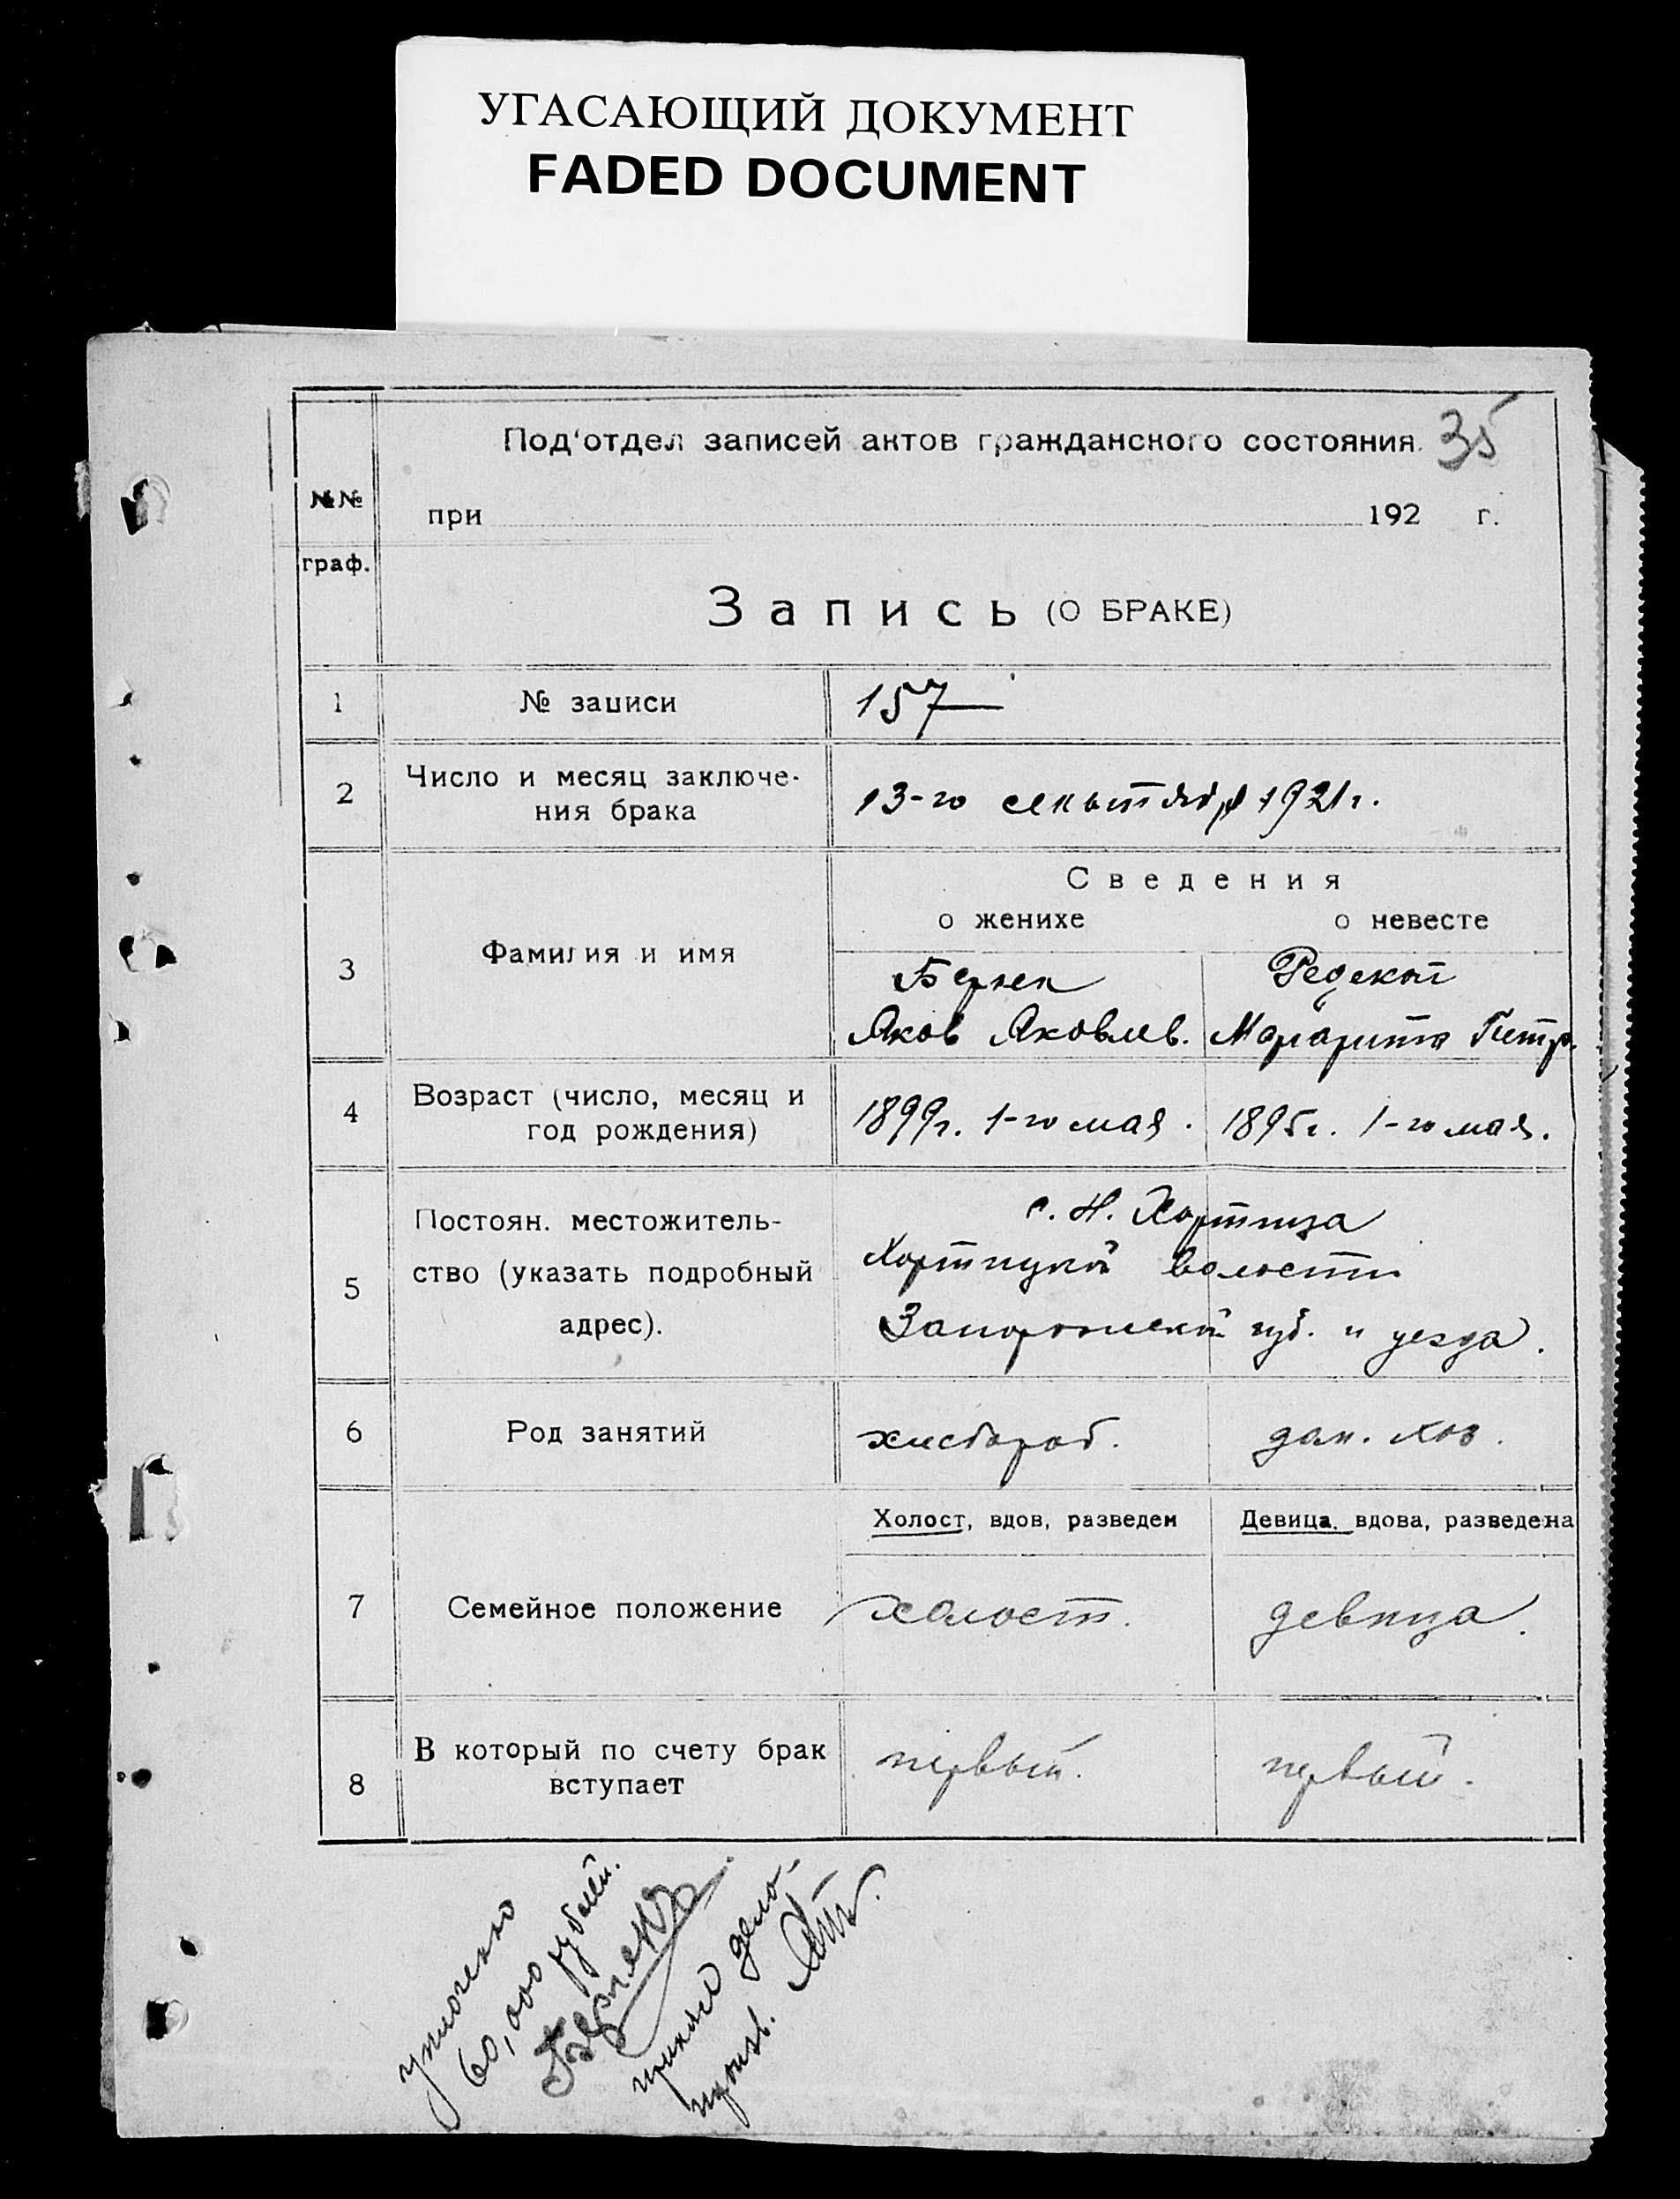 УГАСАЮЩИЙ ДОКУМЕНТ
FADED DOCUMENT
35
Под'отдел записей актов гражданского состояния
№№ граф.
при 192 г.
Запись (О БРАКЕ)
1 № записи 157
2 Число и месяц заключе-
ния брака 13-го сентября 1921 г.
Сведения
о женихе о невесте
3 Фамилия и имя
Берген Редекоп
Яков Яковлев. Маргарита Петр.
4 Возраст (число, месяц и
год рождения) 1899г. 1-го мая. 1895г. 1-го мая.
5 Постоян. местожитель-
ство (указать подробный
адрес).
с. Н. Хортица
Хортицкой волости
Запорожской губ. и уезда.
6 Род занятий хлебороб. дом. хоз.
Холост, вдов, разведен Девица, вдова, разведена
7 Семейное положение холост. девица.
8 В который по счету брак
вступает первый. первый.
уплочено
60,000 рублей.
Берген
принял дело-
произв.